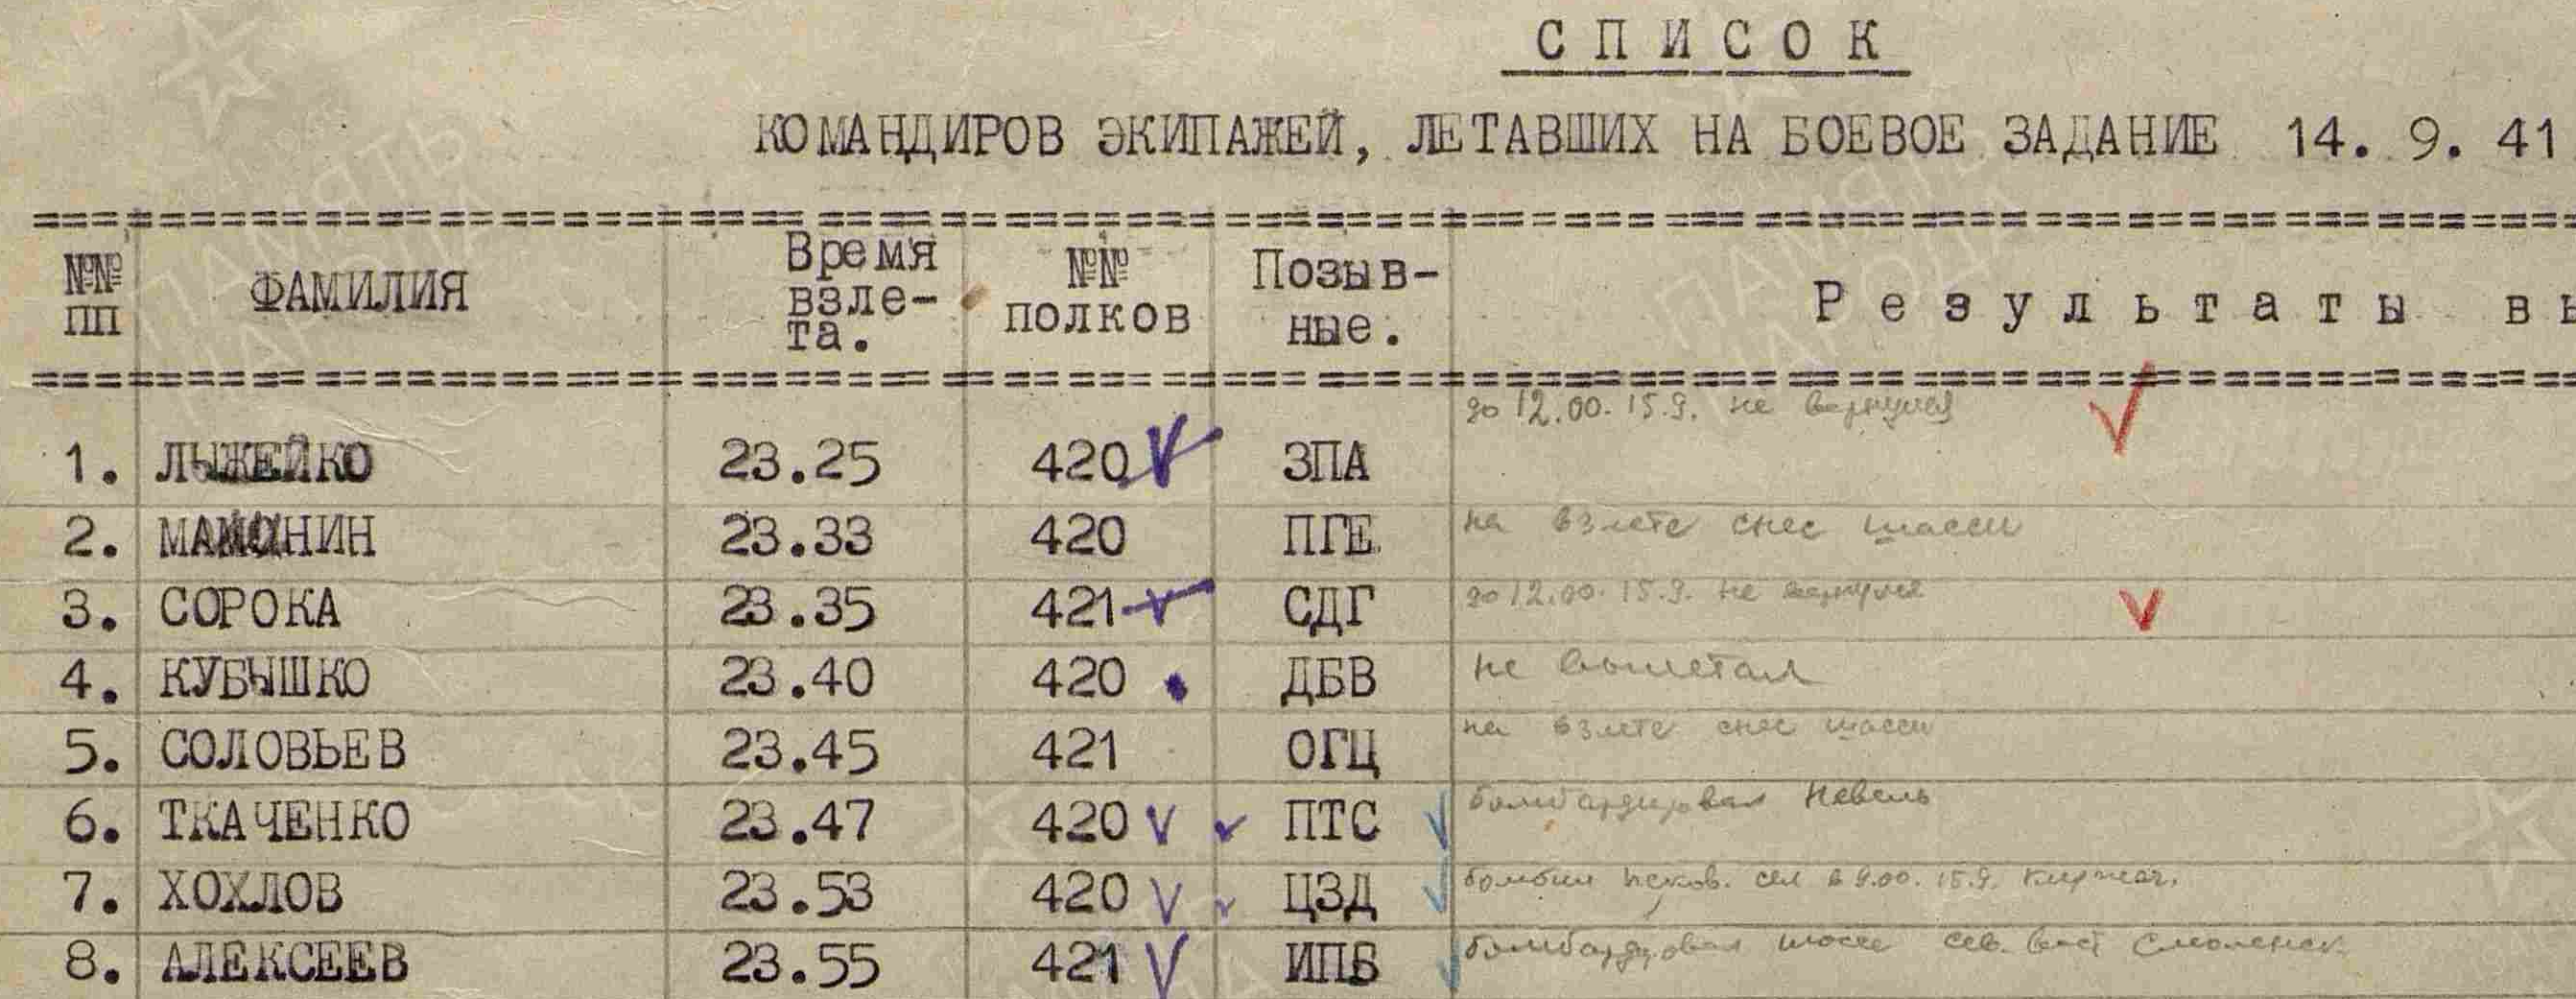 СПИСОК
КОМАНДИРОВ ЭКИПАЖЕЙ, ЛЕТАВШИХ НА БОЕВОЕ ЗАДАНИЕ 14. 9. 41
№№ пп ФАМИЛИЯ Время взле-та. №№ полков Позыв-ные. Результаты вы
1. ЛЫЖЕЙКО 23.25 420 ЗПА до 12.00. 15.9. не вернулся
2. МАМОНИН 23.33 420 ПГЕ на взлете снес шасси
3. СОРОКА 23.35 421 СДГ до 12.00. 15.9. не вернулся
4. КУБЫШКО 23.40 420 ДБВ не вылетал
5. СОЛОВЬЕВ 23.45 421 ОГЦ на взлете снес шасси
6. ТКАЧЕНКО 23.47 420 ПТС бомбардировал Невель
7. ХОХЛОВ 23.53 420 ЦЗД бомбил Псков. сел в 9.00. 15.9. Киржач.
8. АЛЕКСЕЕВ 23.55 421 ИПБ бомбардировал шоссе сев. вост Смоленск.
ПАМЯТЬ НАРОДА